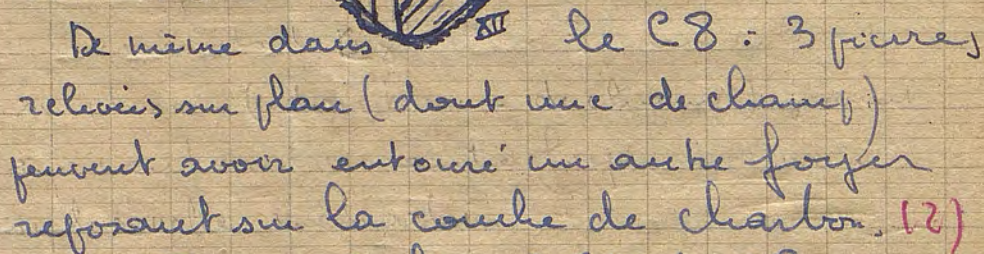 De même dans XII le C8 : 3 pierres
relevées sur plan (dont une de champ)
peuvent avoir entouré un autre foyer
reposant sur la couche de charbon. (2)